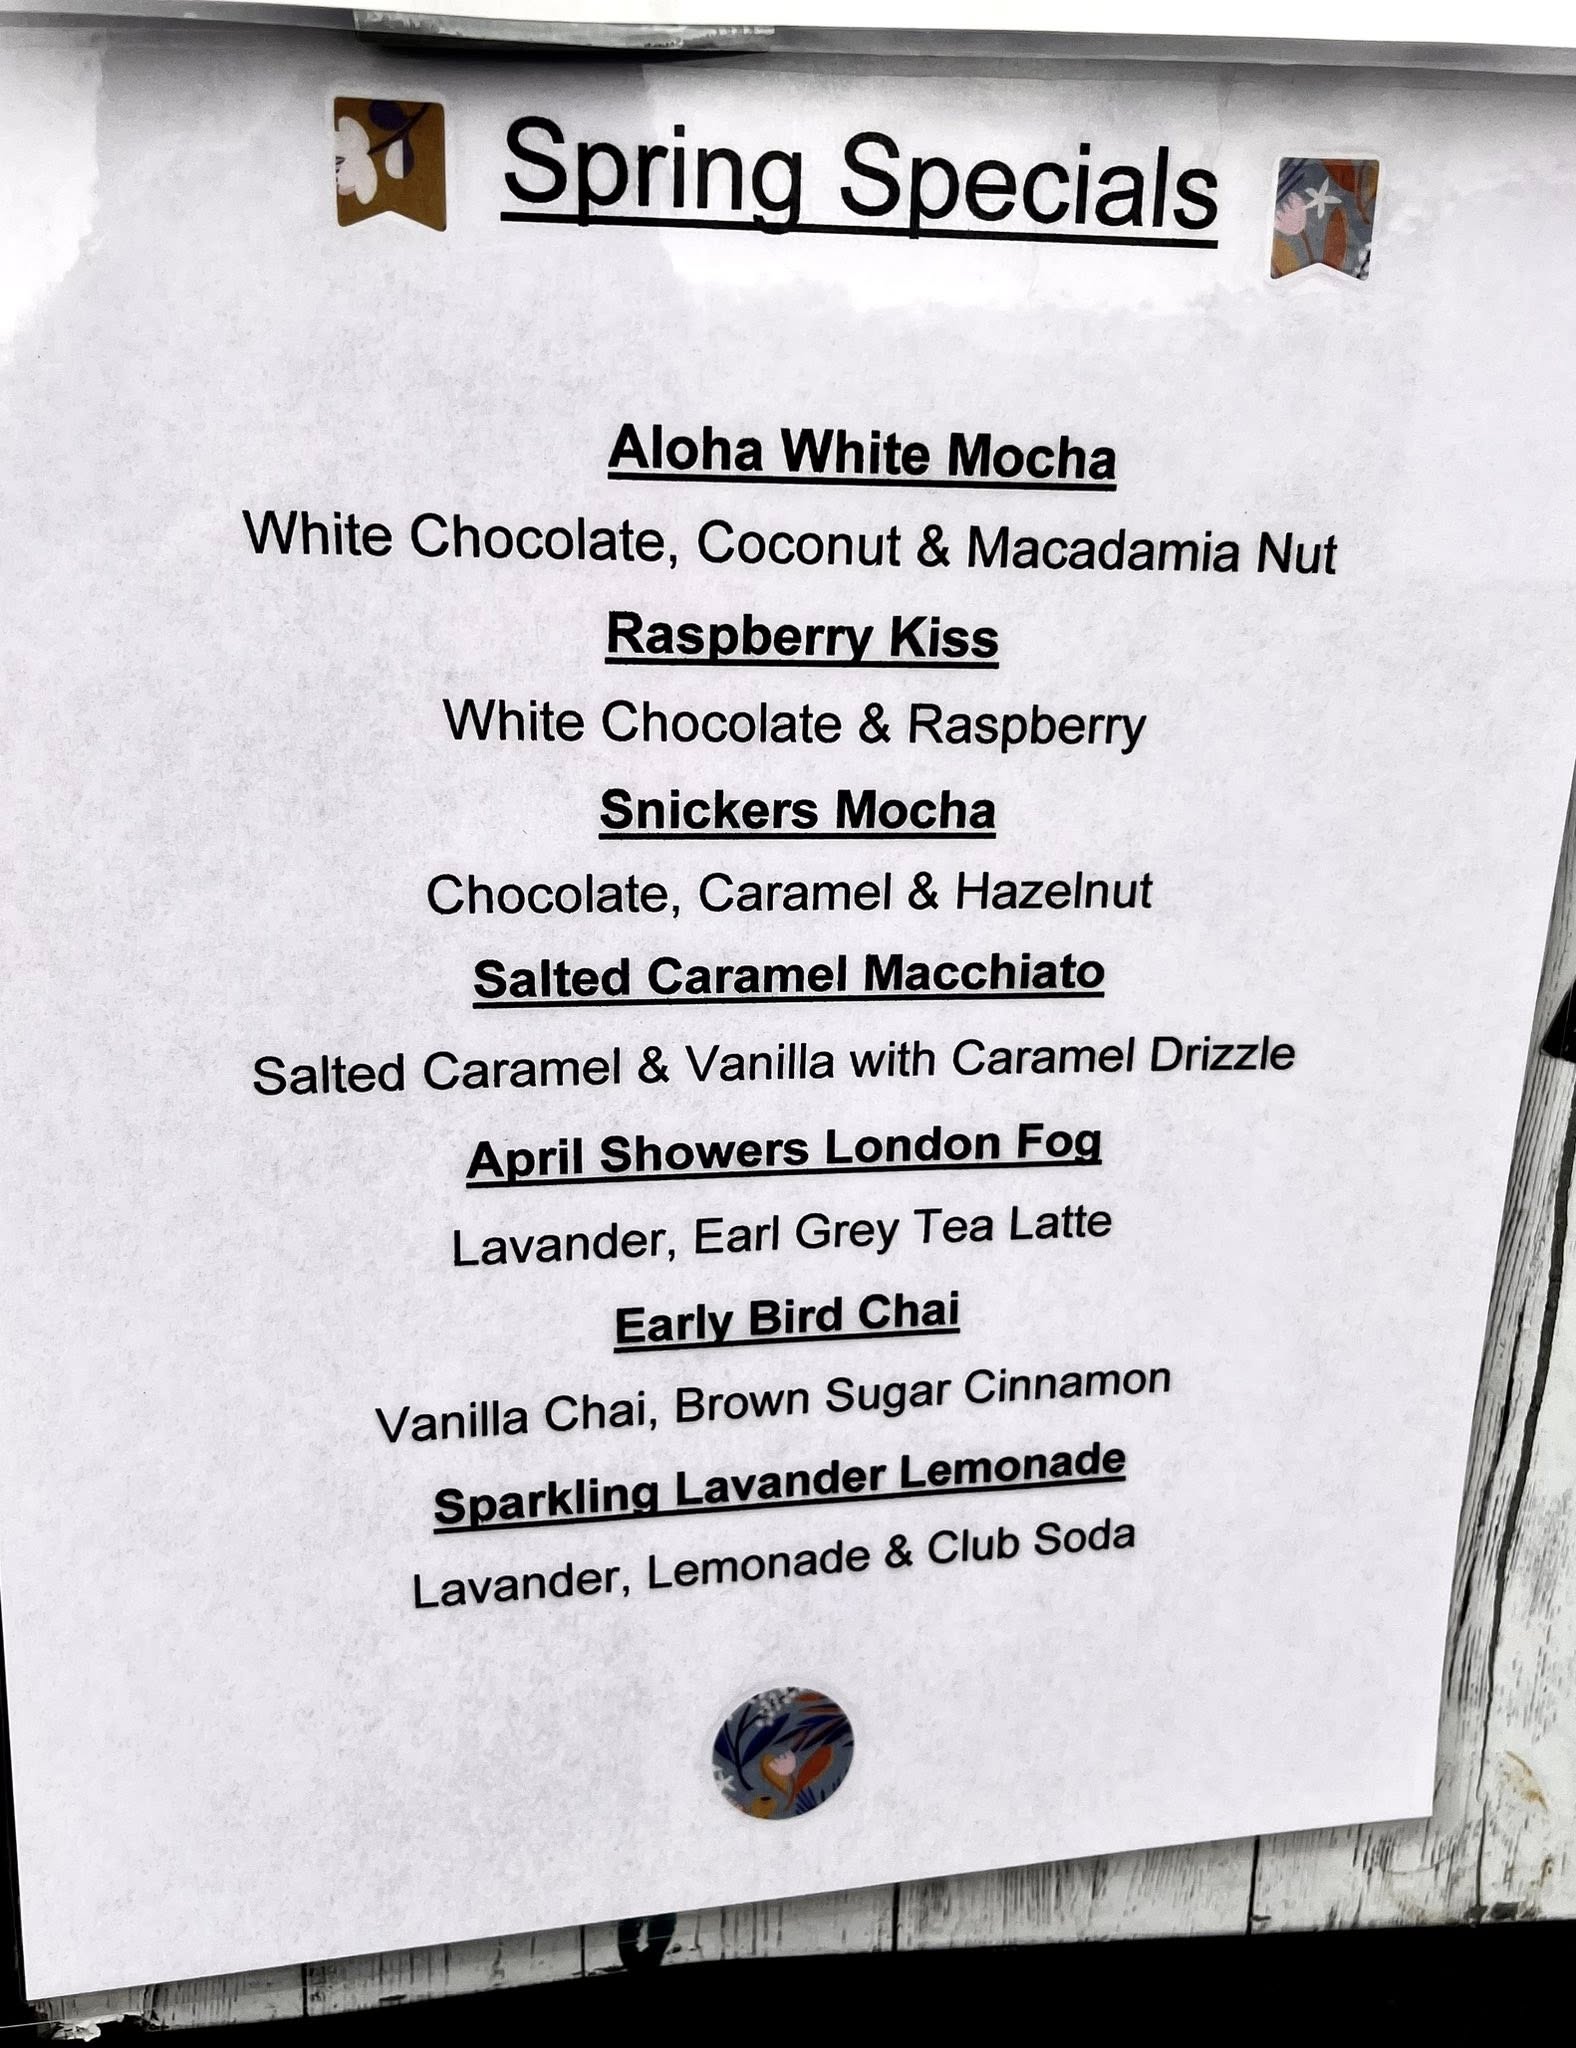 Spring Specials
Aloha White Mocha
White Chocolate, Coconut & Macadamia Nut
Raspberry Kiss
White Chocolate & Raspberry
Snickers Mocha
Chocolate, Caramel & Hazelnut
Salted Caramel Macchiato
Salted Caramel & Vanilla with Caramel Drizzle
April Showers London Fog
Lavander, Earl Grey Tea Latte
Early Bird Chai
Vanilla Chai, Brown Sugar Cinnamon
Sparkling Lavander Lemonade
Lavander, Lemonade & Club Soda